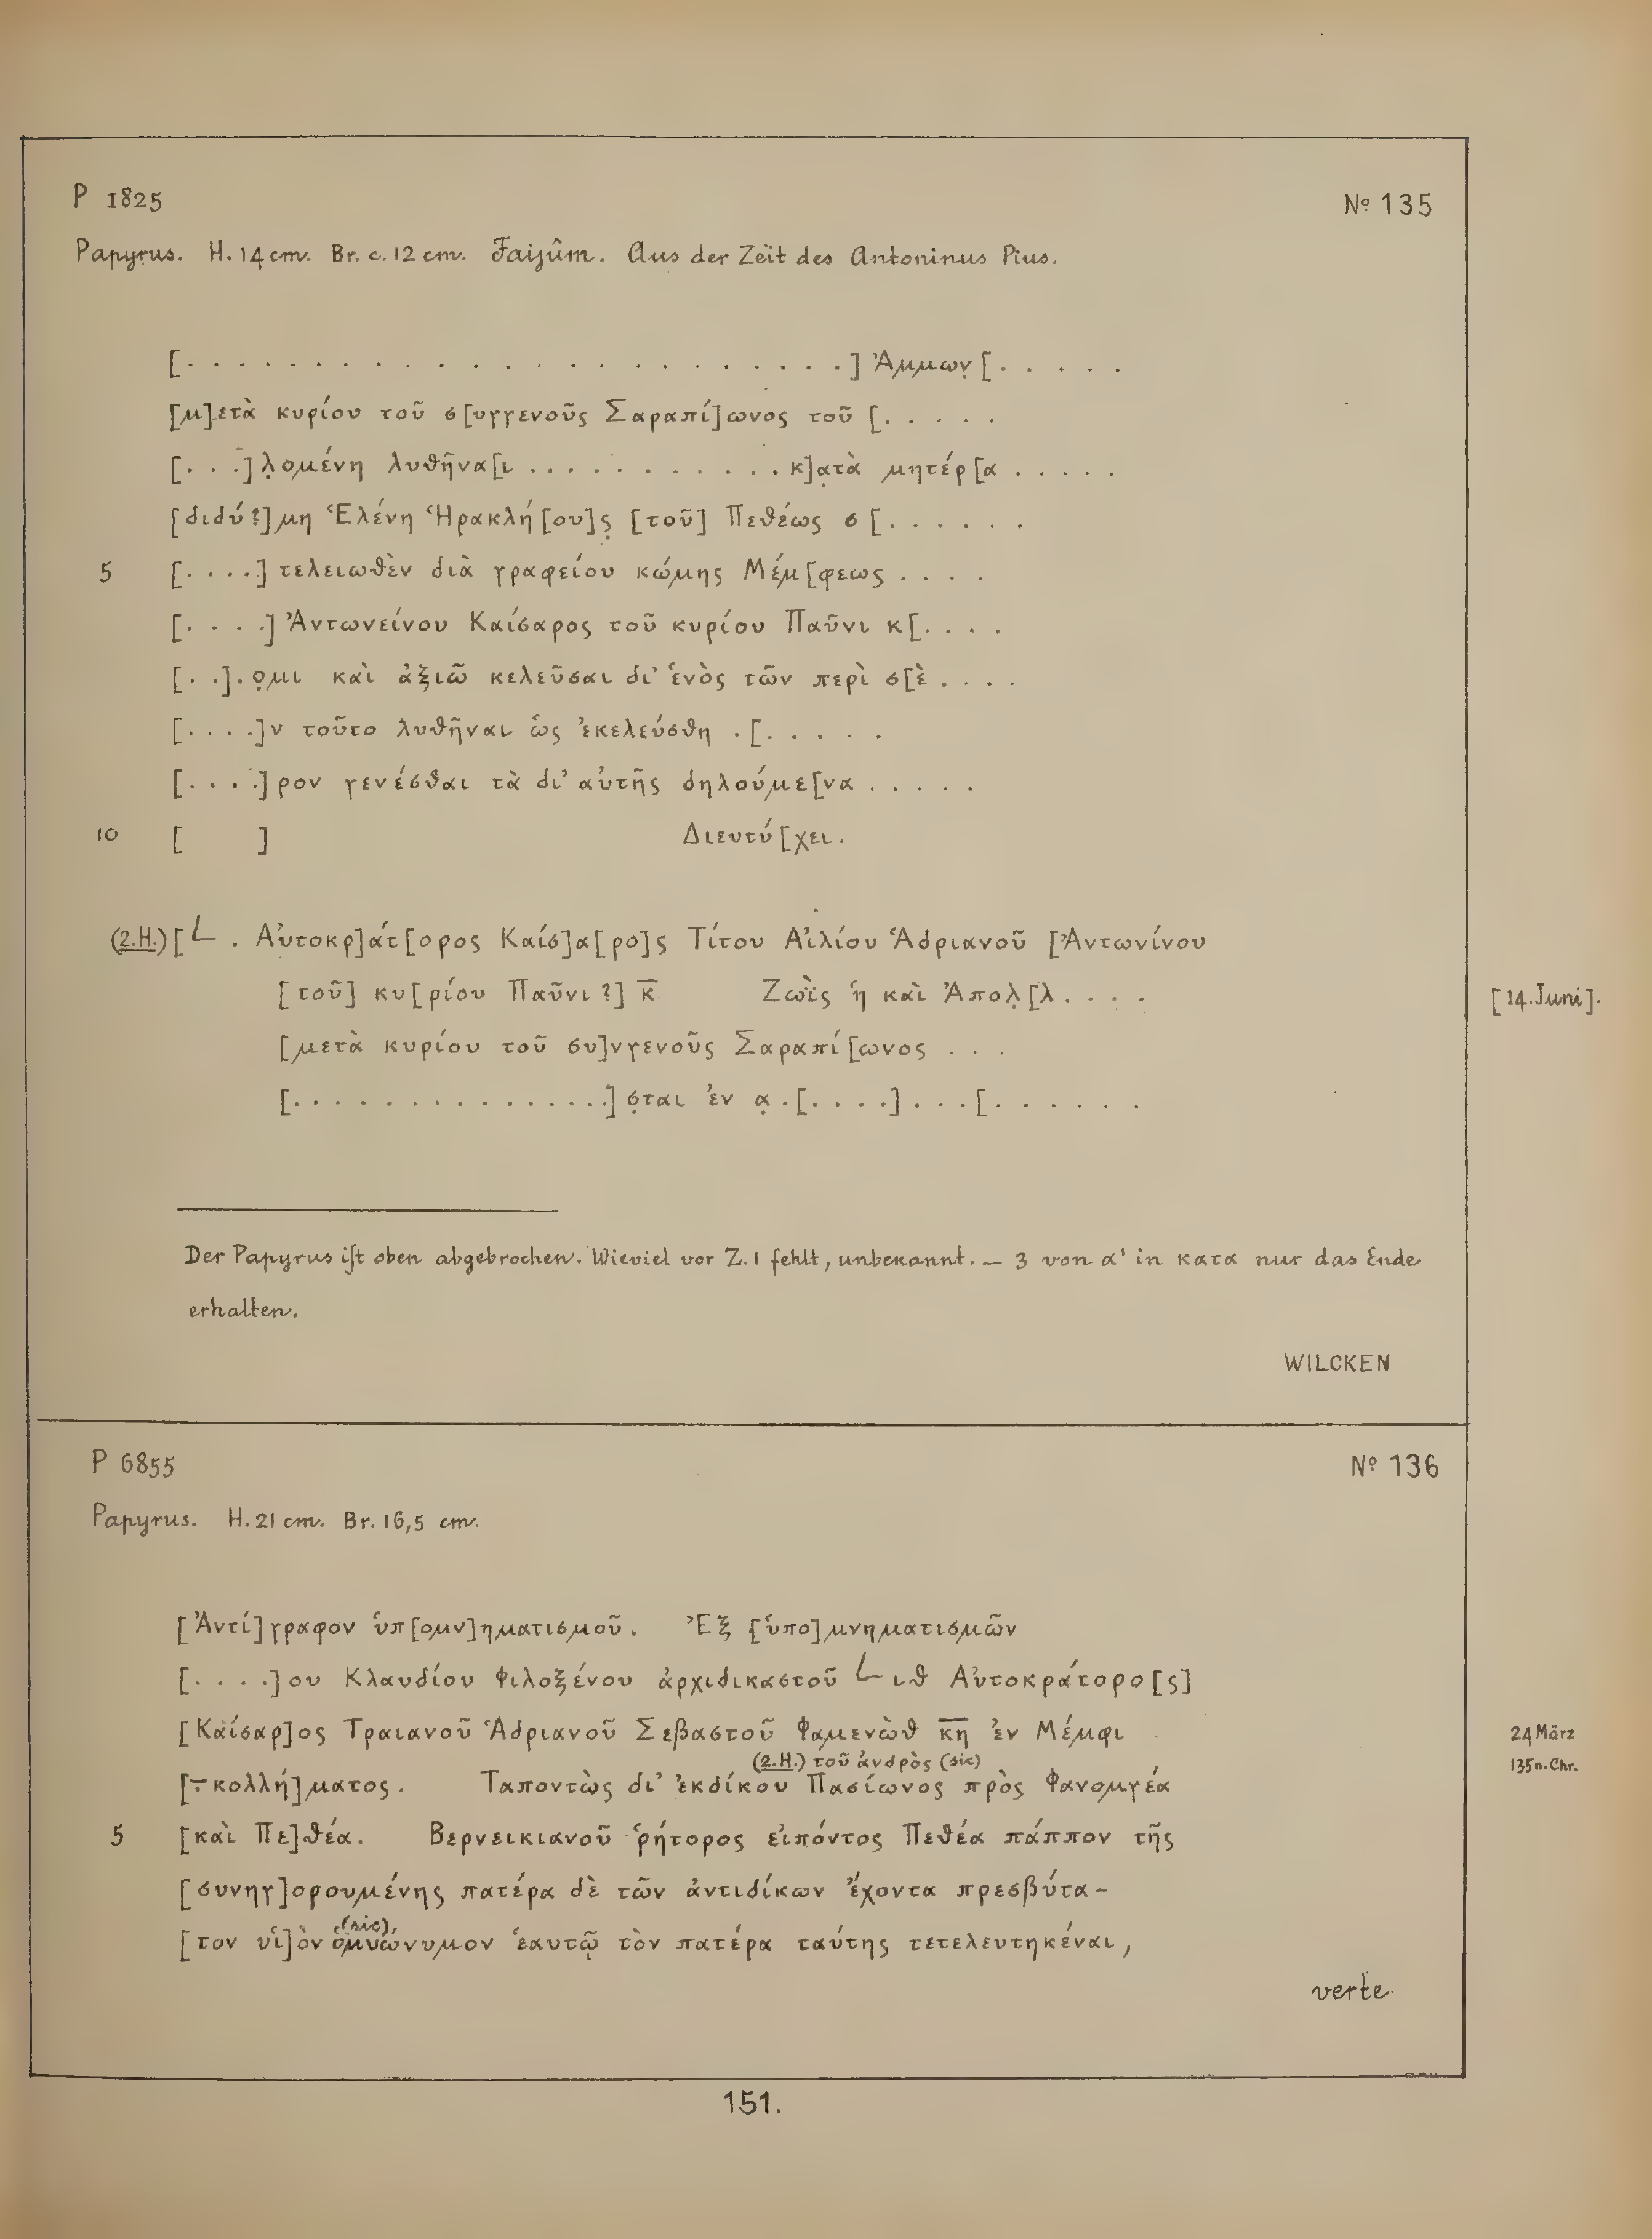 P 1825 Nº 135
Papyrus. H. 14 cm. Br. c. 12 cm. Faijûm. Aus der Zeit des Antoninus Pius.
[. . . . . . . . . . . . . . . . . . . . . . . .] Ἀμμων̣[. . . . .
[μ]ετὰ κυρίου τοῦ σ[υγγενοῦς Σαραπί]ωνος τοῦ [. . . . .
[. . .]λ̣ομένη λυθῆνα[ι . . . . . . . . . . . . κ]α̣τὰ μητέρ[α . . . . .
[διδύ?]μη Ἑλένη Ἡρακλή[ου]ς̣ [τοῦ] Πεθέως σ[. . . . . .
5 [. . . .] τελειωθὲν διὰ γραφείου κώμης Μέμ[φεως . . . .
[. . . .] Ἀντωνείνου Καίσαρος τοῦ κυρίου Παῦνι κ[. . . .
[. .]. ο̣μι καὶ ἀξιῶ κελεῦσαι δι' ἑνὸς τῶν περὶ σ[ὲ . . . .
[. . . .]ν τοῦτο λυθῆναι ὡς ἐκελεύσθη . [. . . . .
[. . . .]ρον γενέσθαι τὰ δι' αὐτῆς δηλούμε[να . . . . .
10 [ ] Διευτύ[χει.
(2.H.) [L . Αὐτοκρ]άτ[ορος Καίσ]α[ρο]ς Τίτου Αἰλίου Ἁδριανοῦ [Ἀντωνίνου
[τοῦ] κυ[ρίου Παῦνι?] κ̅ Ζωὶς ἡ καὶ Ἀπολ̣[λ. . . . [14. Juni].
[μετὰ κυρίου τοῦ συ]νγενοῦς Σαραπί[ωνος . . .
[. . . . . . . . . . . . . . .]σ̣ται ἐν α̣ . [. . . .] . . . [. . . . . .
Der Papyrus ist oben abgebrochen. Wieviel vor Z. 1 fehlt, unbekannt. — 3 von α' in κατα nur das Ende
erhalten.
WILCKEN
P 6855 Nº 136
Papyrus. H. 21 cm. Br. 16,5 cm.
[Ἀντί]γραφον ὑπ[ομν]ηματισμοῦ. Ἐξ [ὑπο]μνηματισμῶν
[. . . .]ου Κλαυδίου Φιλοξένου ἀρχιδικαστοῦ L ιθ Αὐτοκράτορο[ς]
[Καίσαρ]ος Τραιανοῦ Ἁδριανοῦ Σεβαστοῦ Φαμενὼθ κ̅η̅ ἐν Μέμφι 24 März
(2.H.) τοῦ ἀνδρὸς (sic) 135 n. Chr.
[–κολλή]ματος. Ταποντὼς δι' ἐκδίκου Πασίωνος πρὸς Φανομγέα
5 [καὶ Πε]θέα. Βερνεικιανοῦ ῥήτορος εἰπόντος Πεθέα πάππον τῆς
[συνηγ]ορουμένης πατέρα δὲ τῶν ἀντιδίκων ἔχοντα πρεσβύτα-
(sic)
[τον υἱ]ὸν ὁμνώνυμον ἑαυτῷ τὸν πατέρα ταύτης τετελευτηκέναι,
verte
151.